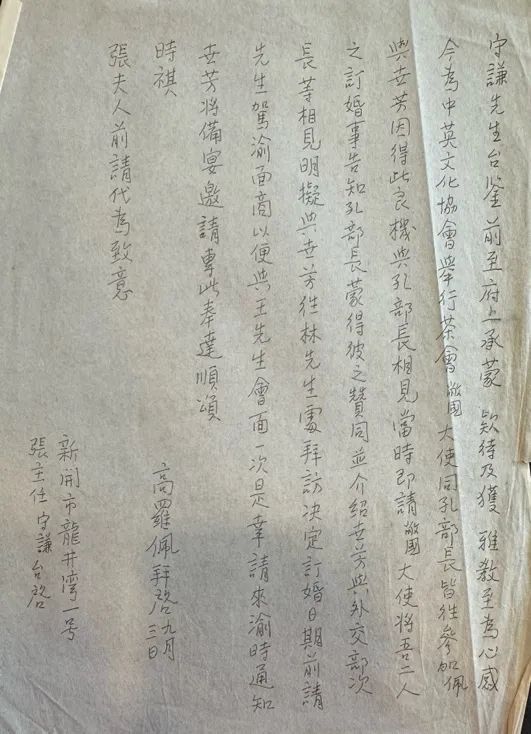 守謙先生台鉴前至府上承蒙 欵待及獲 雅教至為心感
今為中英文化協會舉行茶會敝國大使同孔部長皆往參加佩
與世芳因得此良機與孔部長相見當時即請敝國大使將吾二人
之訂婚事告知孔部長蒙得彼之贊同並介紹世芳與外交部次
長等相見明擬與世芳往林先生處拜訪决定訂婚日期前請
先生駕渝面商以便與王先生會面一次是幸請來渝時通知
世芳將備宴邀請專此奉達順頌
時祺
張夫人前請代為致意
高羅佩拜啓九月三日
新開市龍井灣一号
張主任守謙台啓